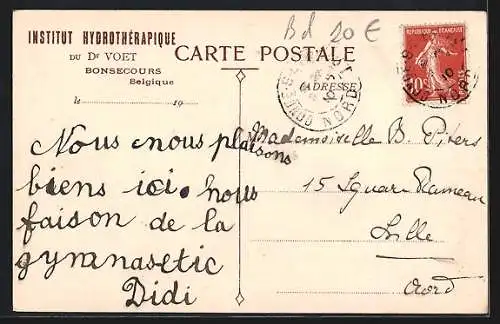 Bd 20€
INSTITUT HYDROTHÉRAPIQUE
DU Dr VOET
BONSECOURS
Belgique
le 19
CARTE POSTALE
ADRESSE
REPUBLIQUE FRANÇAISE
10c
NORD
NORD
Nous nous plaisons
biens ici. nous
faison de la
gymnasetic
Didi
Mademoiselle B. Piters
15 Squar Rameau
Lille
Nord